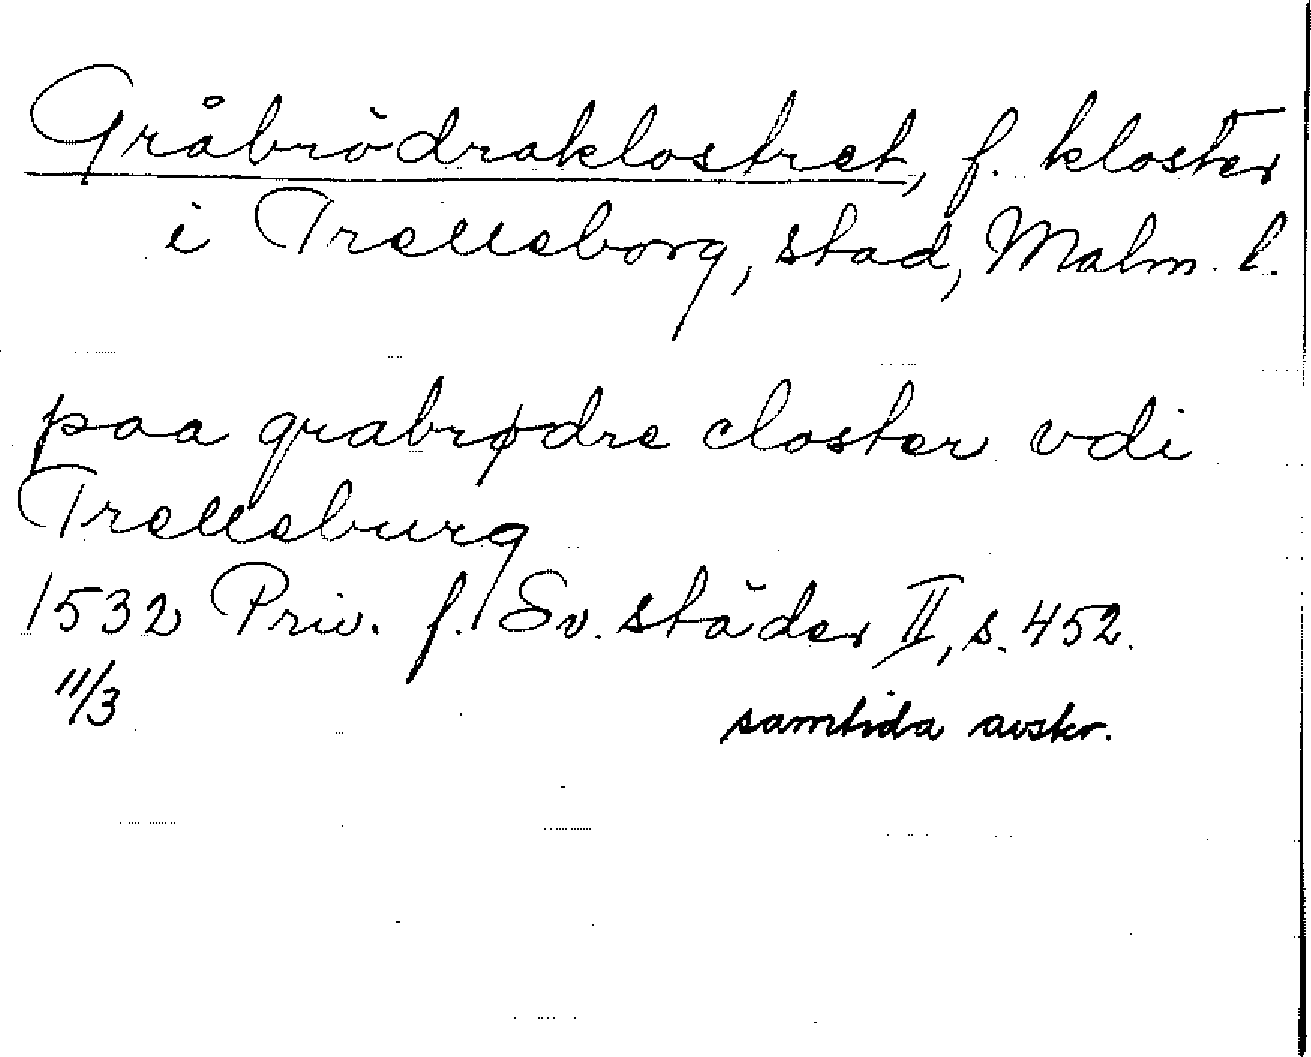 Gråbrödraklostret, f. kloster
i Trelleborg, stad, Malm. l.
paa grabrødre closter vdi
Trelleburg
1532 Priv. f. Sv. städer II, s. 452.
11/3
samtida avskr.